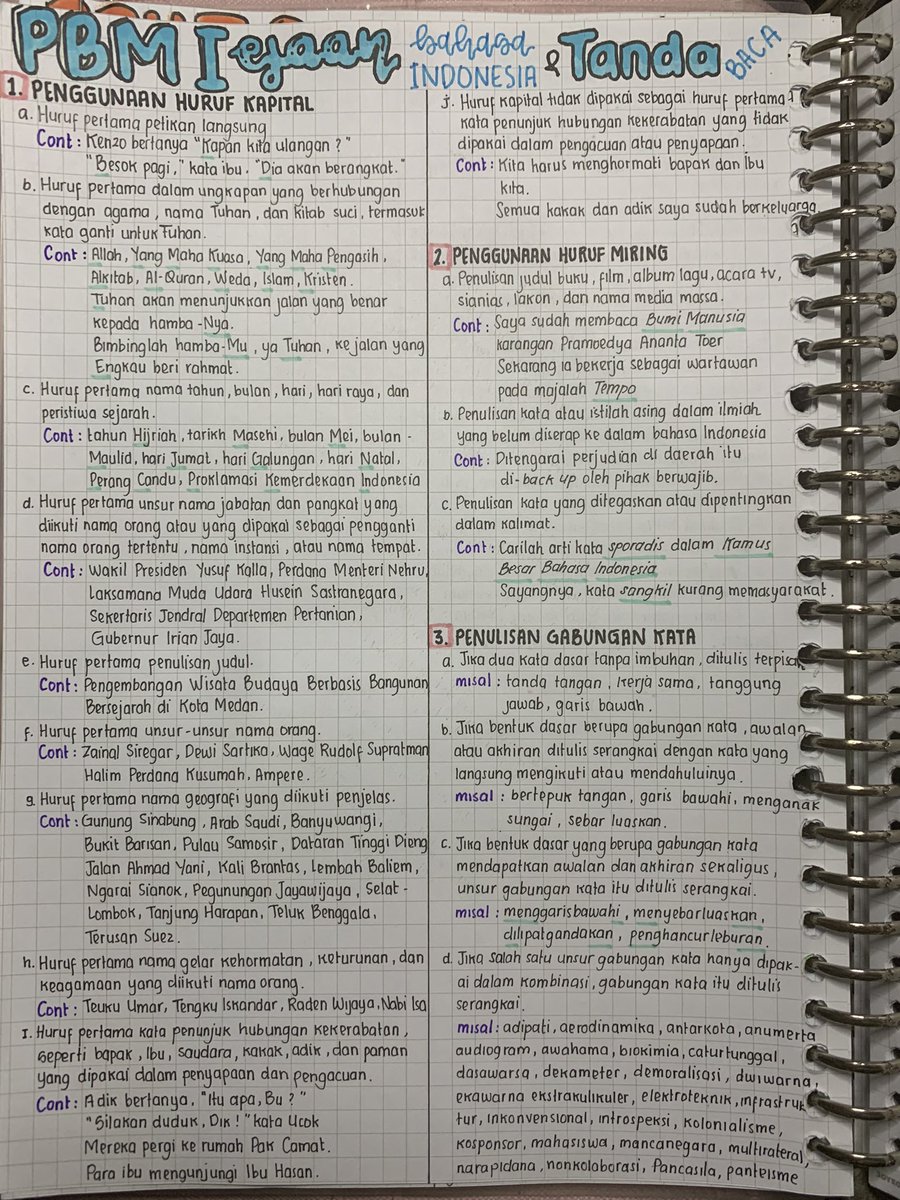 PBM I ejaan bahasa INDONESIA & Tanda BACA
1. PENGGUNAAN HURUF KAPITAL
a. Huruf pertama petikan langsung
Cont : Kenzo bertanya "Kapan kita ulangan ?"
"Besok pagi," kata ibu. "Dia akan berangkat."
b. Huruf pertama dalam ungkapan yang berhubungan
dengan agama, nama Tuhan, dan kitab suci, termasuk
kata ganti untuk Tuhan.
Cont : Allah, Yang Maha Kuasa, Yang Maha Pengasih,
Alkitab, Al-Quran, Weda, Islam, Kristen.
Tuhan akan menunjukkan jalan yang benar
kepada hamba-Nya.
Bimbinglah hamba-Mu, ya Tuhan, ke jalan yang
Engkau beri rahmat.
c. Huruf pertama nama tahun, bulan, hari, hari raya, dan
peristiwa sejarah.
Cont : tahun Hijriah, tarikh Masehi, bulan Mei, bulan-
Maulid, hari Jumat, hari Galungan, hari Natal,
Perang Candu, Proklamasi Kemerdekaan Indonesia
d. Huruf pertama unsur nama jabatan dan pangkat yang
diikuti nama orang atau yang dipakai sebagai pengganti
nama orang tertentu, nama instansi, atau nama tempat.
Cont : Wakil Presiden Yusuf Kalla, Perdana Menteri Nehru,
Laksamana Muda Udara Husein Sastranegara,
Sekertaris Jendral Departemen Pertanian,
Gubernur Irian Jaya.
e. Huruf pertama penulisan judul.
Cont : Pengembangan Wisata Budaya Berbasis Bangunan
Bersejarah di Kota Medan.
f. Huruf pertama unsur-unsur nama orang.
Cont : Zainal Siregar, Dewi Sartika, Wage Rudolf Supratman
Halim Perdana Kusumah, Ampere.
g. Huruf pertama nama geografi yang diikuti penjelas.
Cont : Gunung Sinabung, Arab Saudi, Banyuwangi,
Bukit Barisan, Pulau Samosir, Dataran Tinggi Dieng
Jalan Ahmad Yani, Kali Brantas, Lembah Baliem,
Ngarai Sianok, Pegunungan Jayawijaya, Selat-
Lombok, Tanjung Harapan, Teluk Benggala,
Terusan Suez.
h. Huruf pertama nama gelar kehormatan, keturunan, dan
keagamaan yang diikuti nama orang.
Cont : Teuku Umar, Tengku Iskandar, Raden Wijaya, Nabi Isa
I. Huruf pertama kata penunjuk hubungan kekerabatan,
seperti bapak, Ibu, saudara, kakak, adik, dan paman
yang dipakai dalam penyapaan dan pengacuan.
Cont : Adik bertanya, "Itu apa, Bu ?"
"Silakan duduk, Dik !" kata Ucok
Mereka pergi ke rumah Pak Camat.
Para ibu mengunjungi Ibu Hasan.
j. Huruf kapital tidak dipakai sebagai huruf pertama
kata penunjuk hubungan kekerabatan yang tidak
dipakai dalam pengacuan atau penyapaan.
Cont : Kita harus menghormati bapak dan Ibu
kita.
Semua kakak dan adik saya sudah berkeluarga
2. PENGGUNAAN HURUF MIRING
a. Penulisan judul buku, film, album lagu, acara tv,
sianias, lakon, dan nama media massa.
Cont : Saya sudah membaca Bumi Manusia
karangan Pramoedya Ananta Toer
Sekarang ia bekerja sebagai wartawan
pada majalah Tempo
b. Penulisan kata atau istilah asing dalam ilmiah
yang belum diserap ke dalam bahasa Indonesia
Cont : Ditengarai perjudian di daerah itu
di-back up oleh pihak berwajib.
c. Penulisan kata yang ditegaskan atau dipentingkan
dalam kalimat.
Cont : Carilah arti kata sporadis dalam Kamus
Besar Bahasa Indonesia
Sayangnya, kata sangkil kurang memasyarakat.
3. PENULISAN GABUNGAN KATA
a. Jika dua kata dasar tanpa imbuhan, ditulis terpisah
misal : tanda tangan, kerja sama, tanggung
jawab, garis bawah.
b. Jika bentuk dasar berupa gabungan kata, awalan
atau akhiran ditulis serangkai dengan kata yang
langsung mengikuti atau mendahuluinya.
misal : bertepuk tangan, garis bawahi, menganak
sungai, sebar luaskan.
c. Jika bentuk dasar yang berupa gabungan kata
mendapatkan awalan dan akhiran sekaligus,
unsur gabungan kata itu ditulis serangkai.
misal : menggarisbawahi, menyebarluaskan,
dilipatgandakan, penghancurleburan.
d. Jika salah satu unsur gabungan kata hanya dipak-
ai dalam kombinasi, gabungan kata itu ditulis
serangkai.
misal : adipati, aerodinamika, antarkota, anumerta
audiogram, awahama, biokimia, caturtunggal,
dasawarsa, dekameter, demoralisasi, dwiwarna,
ekawarna ekstrakulikuler, elektroteknik, infrastruk
tur, inkonvensional, introspeksi, kolonialisme,
kosponsor, mahasiswa, mancanegara, multirateral,
narapidana, nonkolaborasi, Pancasila, panteisme